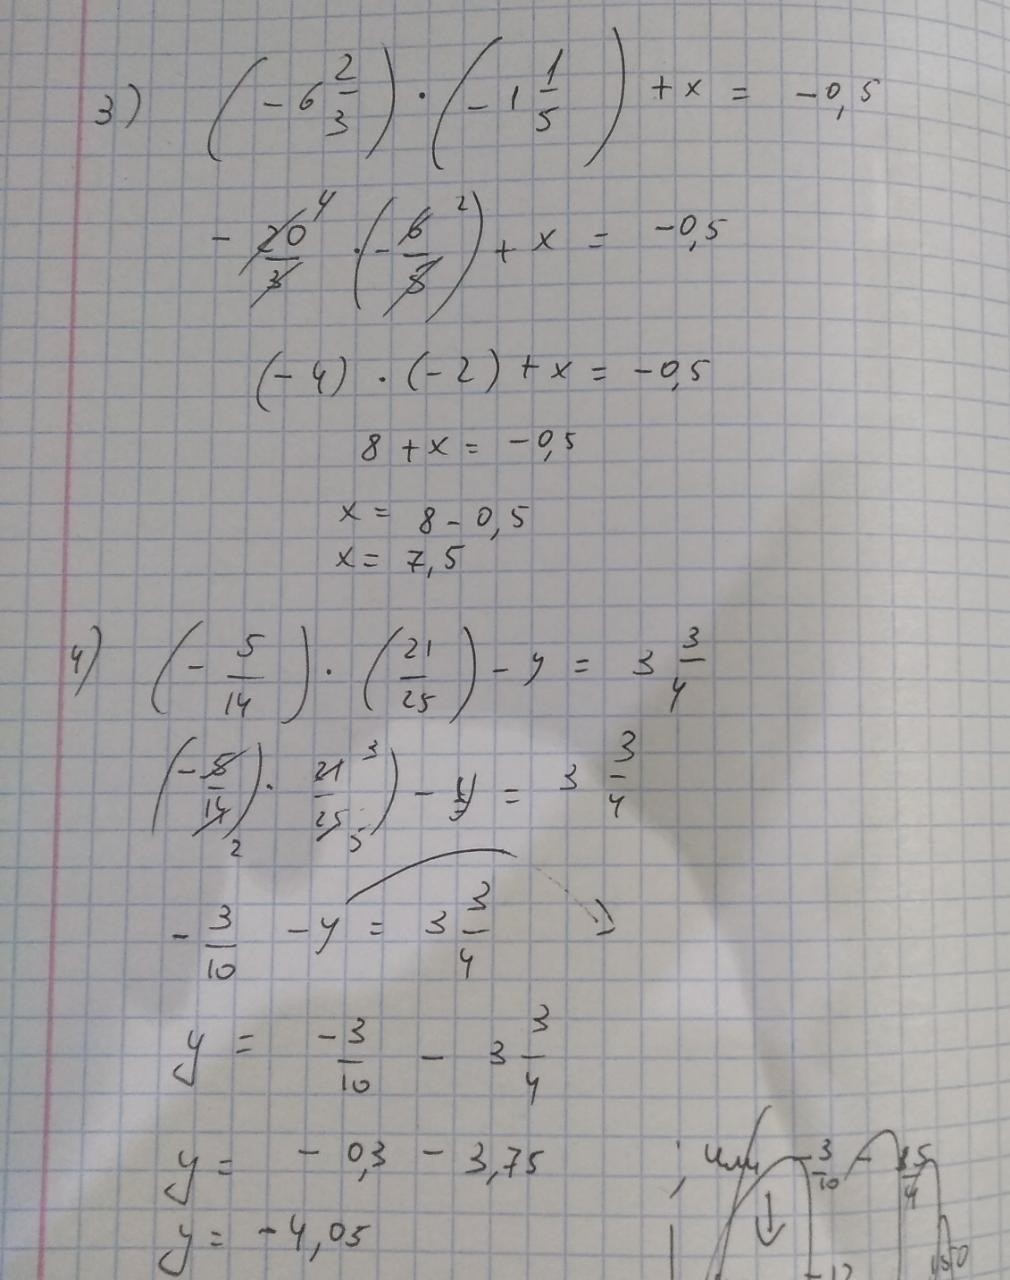 3) (-6 2/3) · (-1 1/5) + x = -0,5
- 20/3 4 · (- 6/5 2) + x = -0,5
(-4) · (-2) + x = -0,5
8 + x = -0,5
x = 8 - 0,5
x = 7,5
4) (- 5/14) · (21/25) - y = 3 3/4
(- 5/14 2) · 21/25 3 5) - y = 3 3/4
- 3/10 - y = 3 3/4
y = -3/10 - 3 3/4
y = - 0,3 - 3,75 ; или - 3/10 - 15/4
y = -4,05